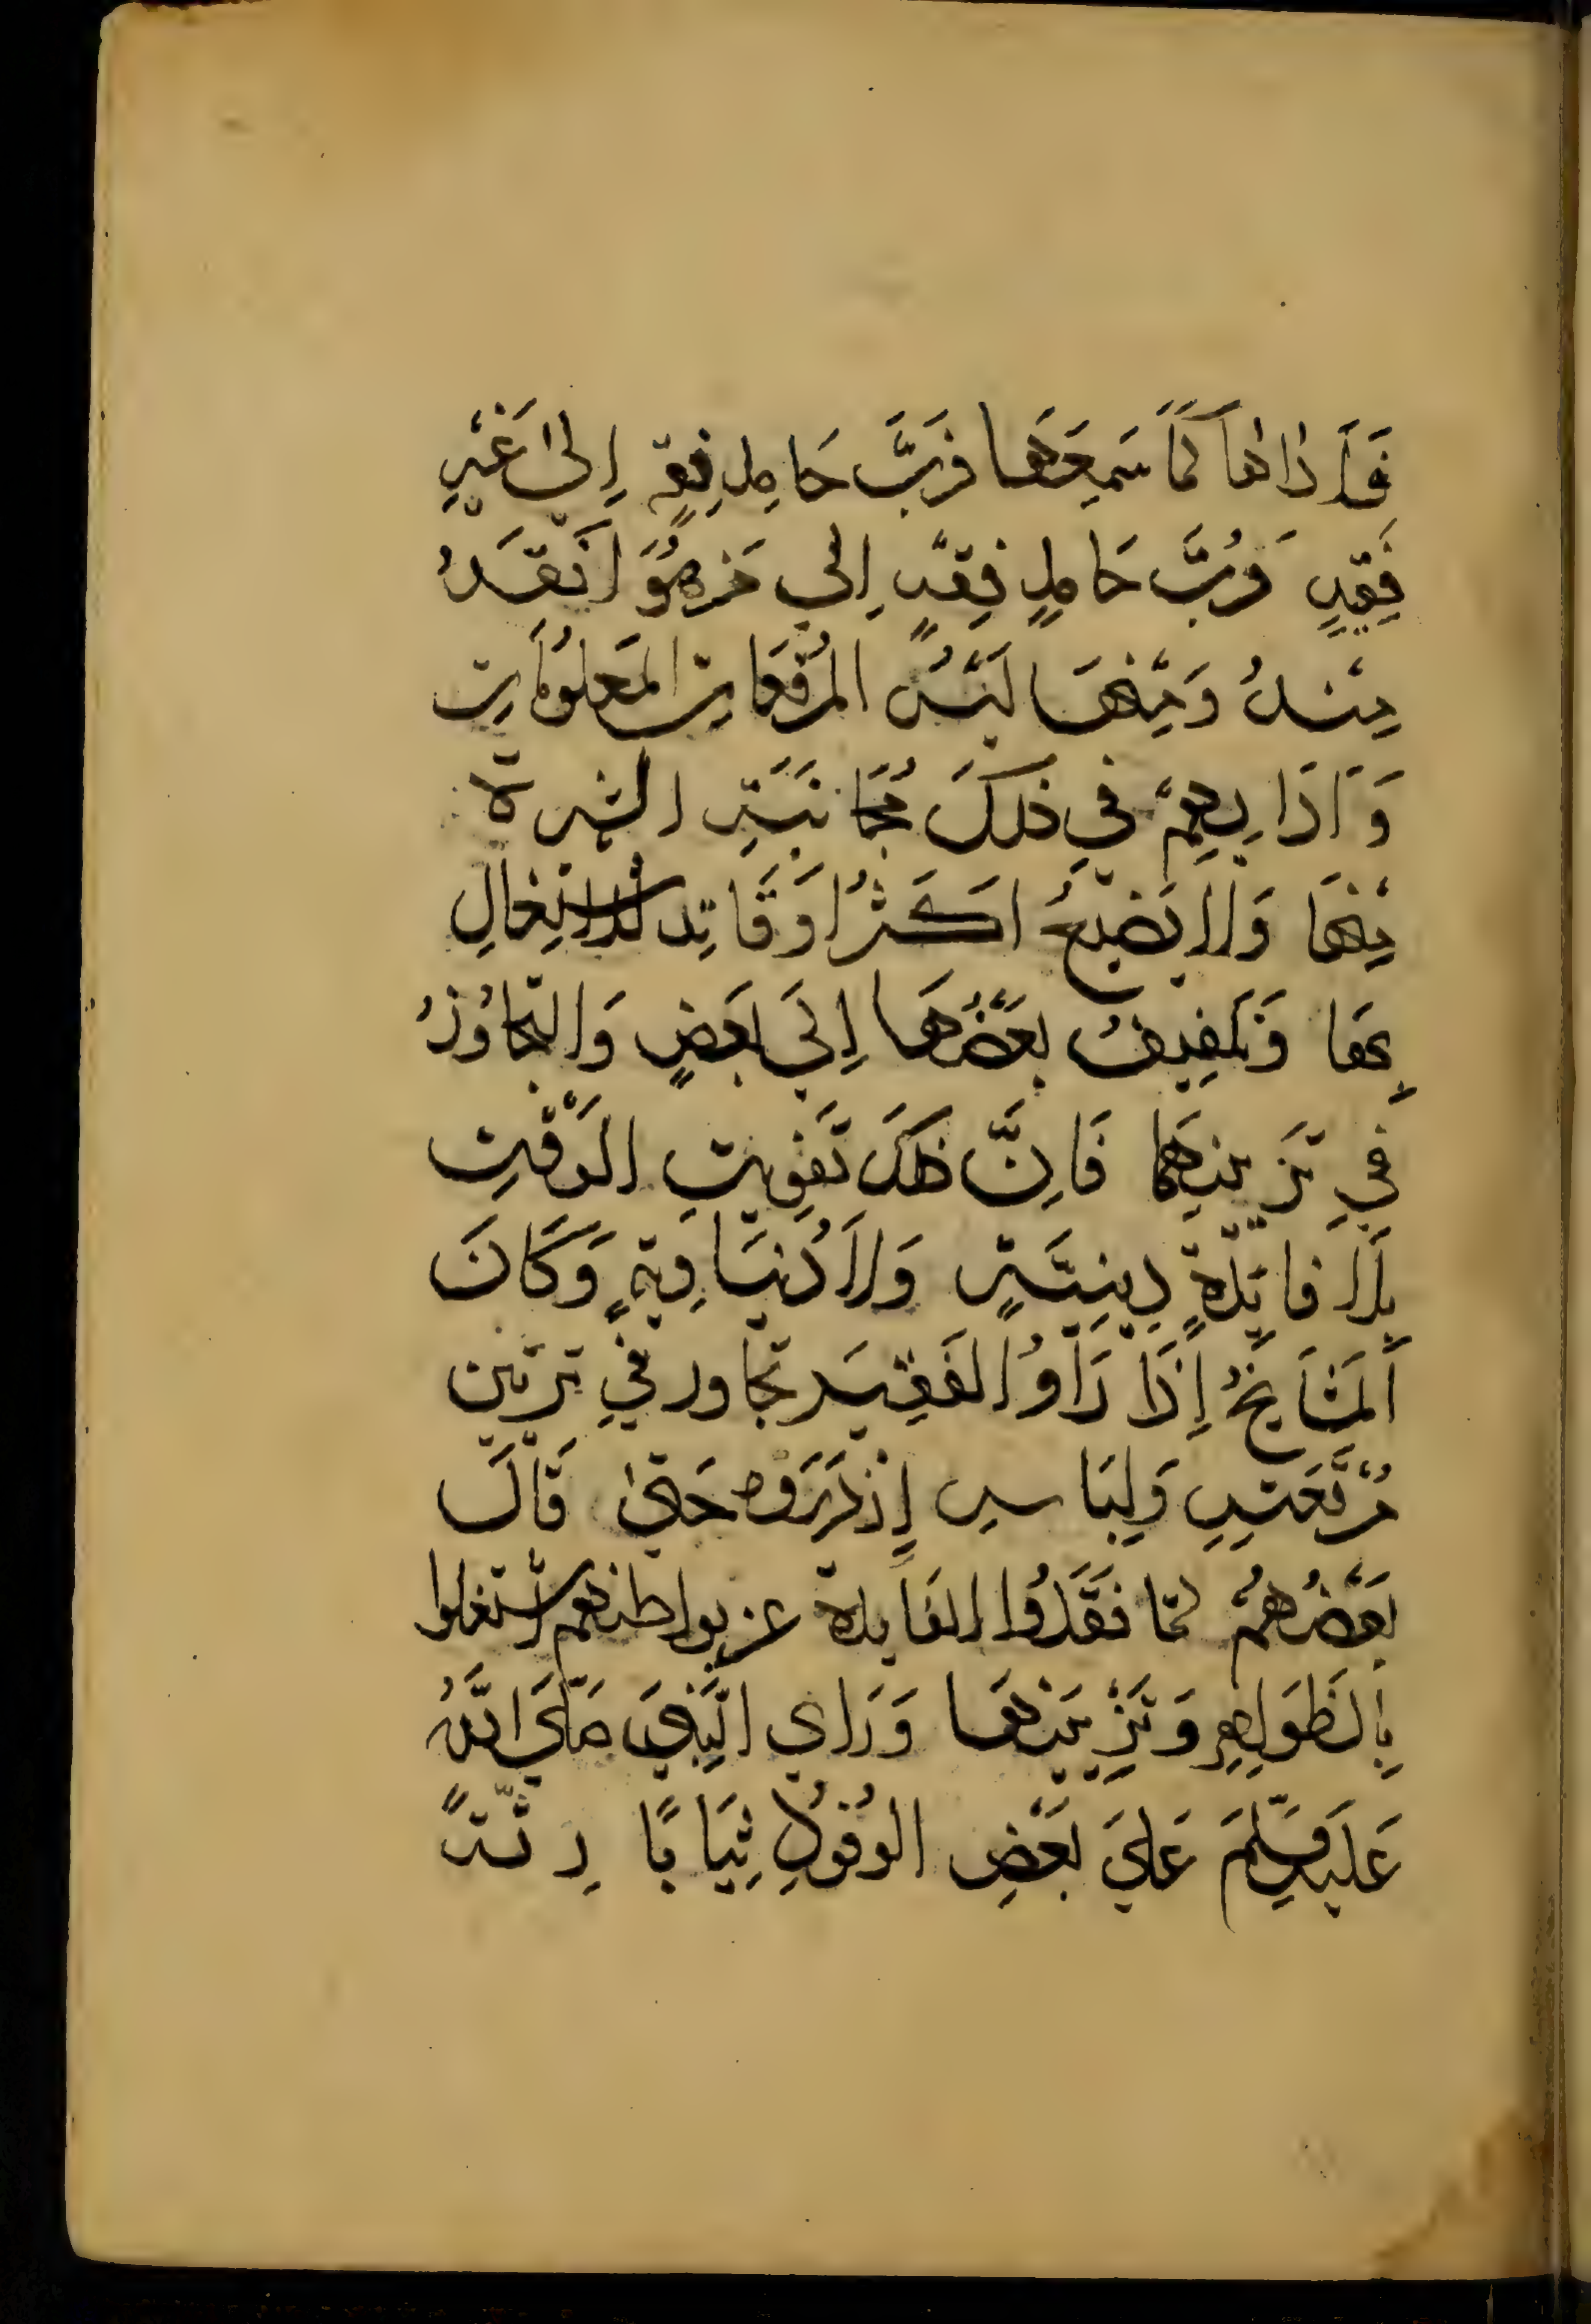 فَأَدَاهَا كَمَا سَمِعَهَا فَرُبَّ حَامِلِ فِقْهٍ إِلَى غَيْرِ
فَقِيهٍ وَرُبَّ حَامِلِ فِقْهٍ إِلَي مَن هُوَ اَفْقَهُ
مِنْهُ وَمِنْهَا لُبْسُ المُرَقَّعَاتِ المَعْلُومَاتِ
وَآدَابِهِمْ فِي ذَلِكَ مُجَانَبَةِ الشهرة
مِنْهَا وَلَا يُضَيِّعُ اَكْثَرُ اَوْقَاتِهِ للاشتِغَالِ
بِهَا وَتَلْفِيفُ بَعْضُهَا اِلَي بَعْضٍ وَالتَّجَاوُزُ
فِي تَزْيِينِهَا فَاِنَّ ذَلِكَ تَفْوِيتِ الوَقْتِ
بِلَا فَايِدَةٍ دِينِيَّةٍ وَلَا دُنْيَاوِيَّةٍ وَكَانَ
المَشَايِخُ إِذَا رَأَوُا الفَقِيرَ تَجَاوز فِي تزيين
مُرَقَّعَتِهِ وَلِبَاسِهِ اِزْدَرَوْهُ حَتَّى قَالَ
بَعْضُهُمْ لمّا فَقَدُوا الفَايِدة عن بواطنهم اشتغلوا
بِالظَّوَاهِرِ وَتَزْيِينِهَا وَرَاي النَّبِيَ صَلَّي اللَّهُ
عَلَيْهِ وَسَلَّمَ عَلَيَ بَعْضِ الوُفُودِ ثِيَابًا رِثَّةً